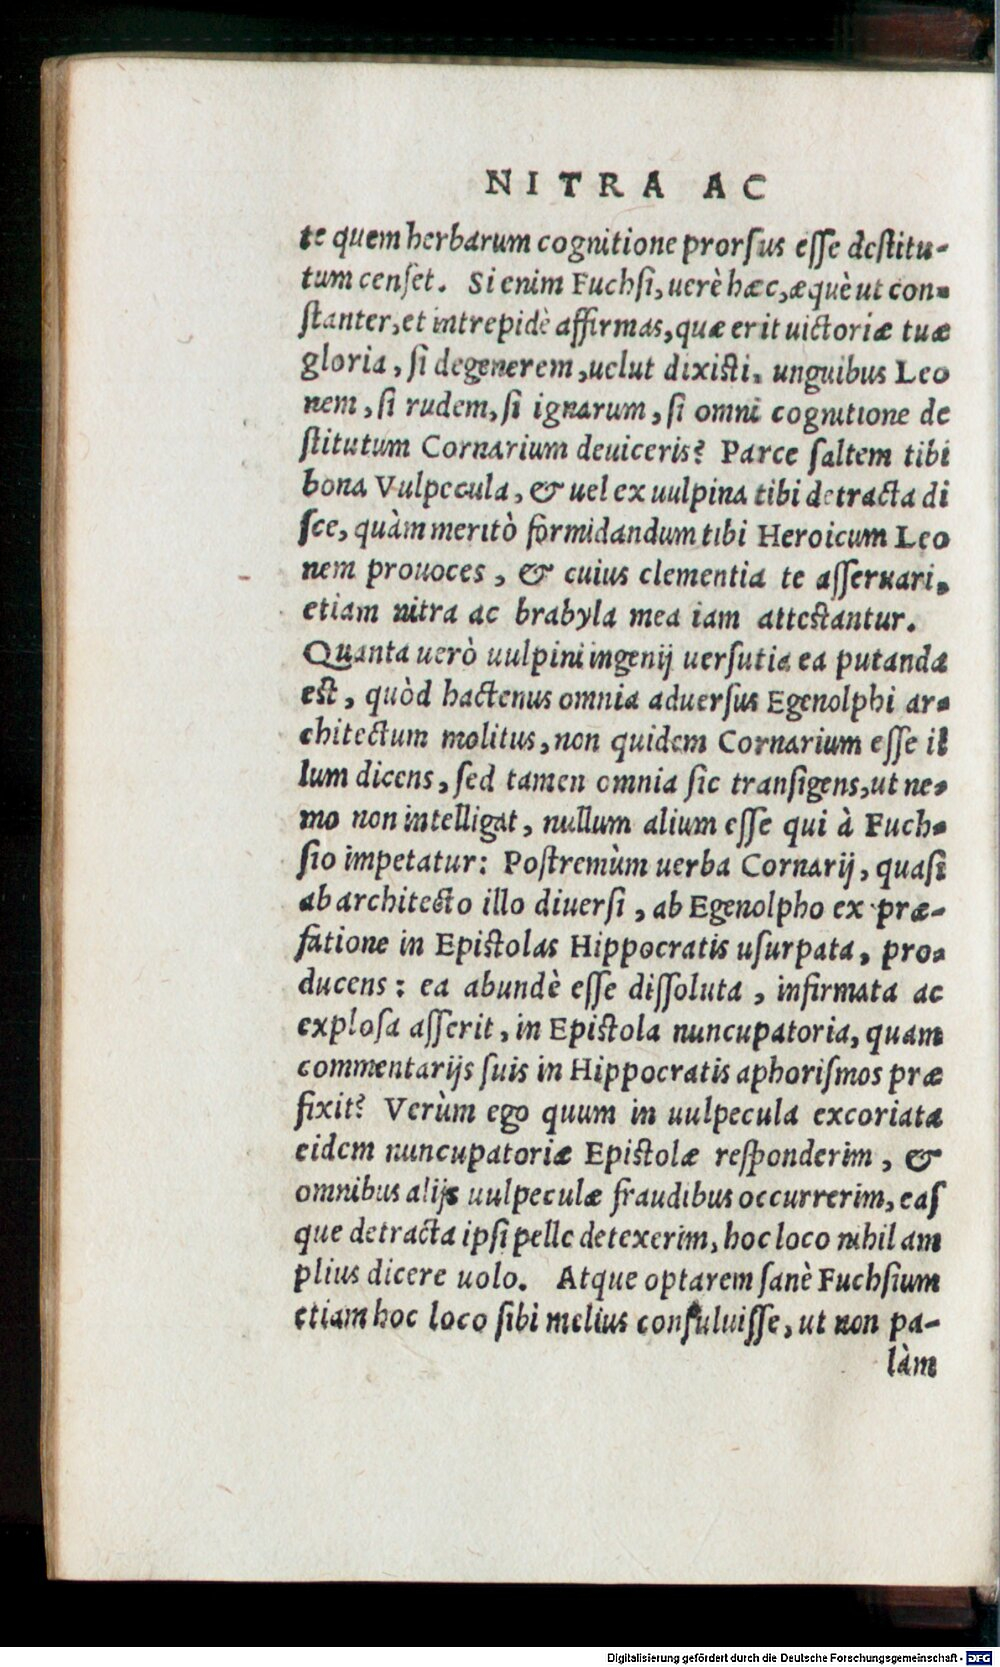 NITRA AC
te quem herbarum cognitione prorsus esse destitu-
tum censet. Si enim Fuchsi, uerè hæc, æquè ut con-
stanter, et intrepidè affirmas, quæ erit uictoriæ tuæ
gloria, si degenerem, uelut dixisti, unguibus Leo
nem, si rudem, si ignarum, si omni cognitione de
stitutum Cornarium deuiceris? Parce saltem tibi
bona Vulpecula, & uel ex uulpina tibi detracta di
sce, quàm meritò formidandum tibi Heroicum Leo
nem prouoces, & cuius clementia te asseruari,
etiam nitra ac brabyla mea iam attestantur.
Quanta uerò uulpini ingenij uersutia ea putanda
est, quòd hactenus omnia aduersus Egenolphi ar-
chitectum molitus, non quidem Cornarium esse il
lum dicens, sed tamen omnia sic transigens, ut ne-
mo non intelligat, nullum alium esse qui à Fuch-
sio impetatur: Postremùm uerba Cornarij, quasi
ab architecto illo diuersi, ab Egenolpho ex præ-
fatione in Epistolas Hippocratis usurpata, pro-
ducens: ea abundè esse dissoluta, infirmata ac
explosa asserit, in Epistola nuncupatoria, quam
commentarijs suis in Hippocratis aphorismos præ
fixit? Verùm ego quum in uulpecula excoriata
eidem nuncupatoriæ Epistolæ responderim, &
omnibus alijs uulpeculæ fraudibus occurrerim, eas
que detracta ipsi pelle detexerim, hoc loco nihil am
plius dicere uolo. Atque optarem sanè Fuchsium
etiam hoc loco sibi melius consuluisse, ut non pa-
làm
Digitalisierung gefördert durch die Deutsche Forschungsgemeinschaft - DFG